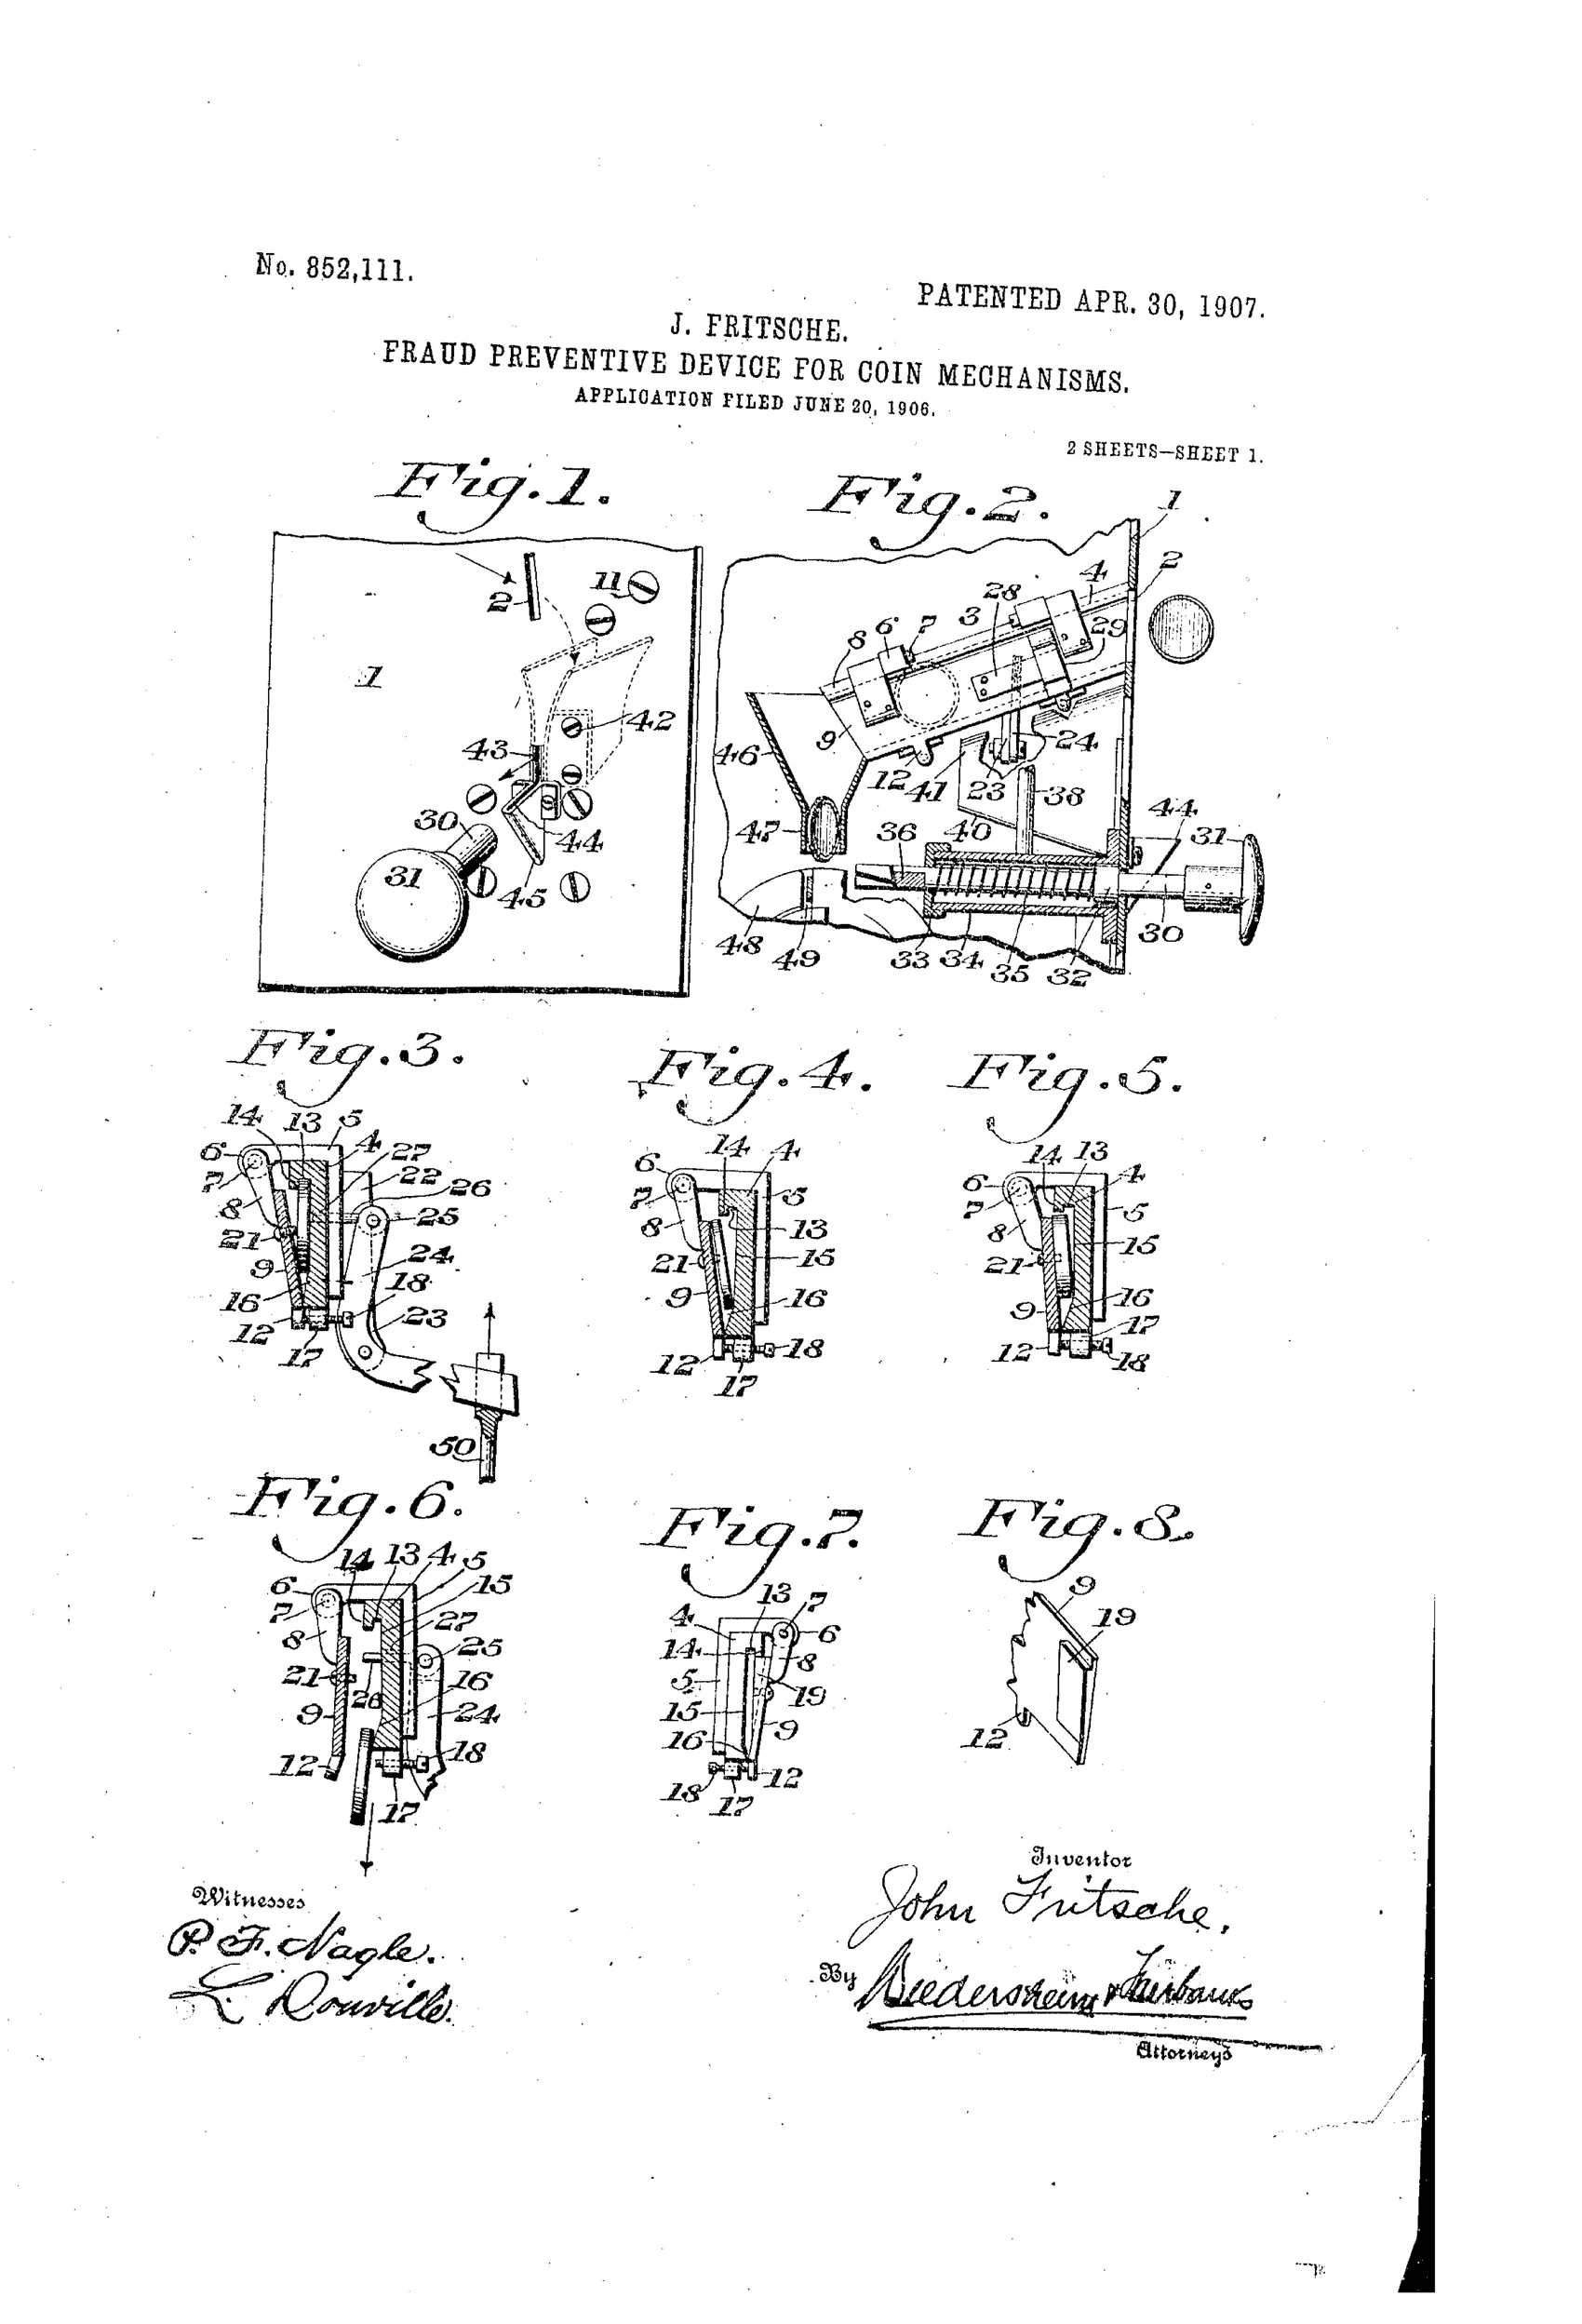 No. 852,111.
PATENTED APR. 30, 1907.
J. FRITSCHE.
FRAUD PREVENTIVE DEVICE FOR COIN MECHANISMS.
APPLICATION FILED JUNE 20, 1906.
2 SHEETS—SHEET 1.
Fig. 1.
2 11 1 42 43 30 44 31 45
Fig. 2.
1 2 4 28 3 7 6 8 29 9 46 24 12 41 23 38 44 47 36 40 31 48 49 33 34 35 32 30
Fig. 3.
14 13 5 6 4 27 7 22 26 8 25 21 24 9 18 16 23 12 17 50
Fig. 4.
14 4 6 7 5 8 13 21 15 9 16 12 18 17
Fig. 5.
14 13 6 4 7 5 8 15 21 16 9 17 12 18
Fig. 6.
14 13 4 5 6 15 7 27 8 25 21 26 16 9 24 12 18 17
Fig. 7.
13 7 4 6 14 8 5 19 15 9 16 12 18 17
Fig. 8.
9 19 12
Witnesses
P. F. Nagle.
L. Douville.
Inventor
John Fritsche,
By Wiedersheim & Fairbanks
Attorneys